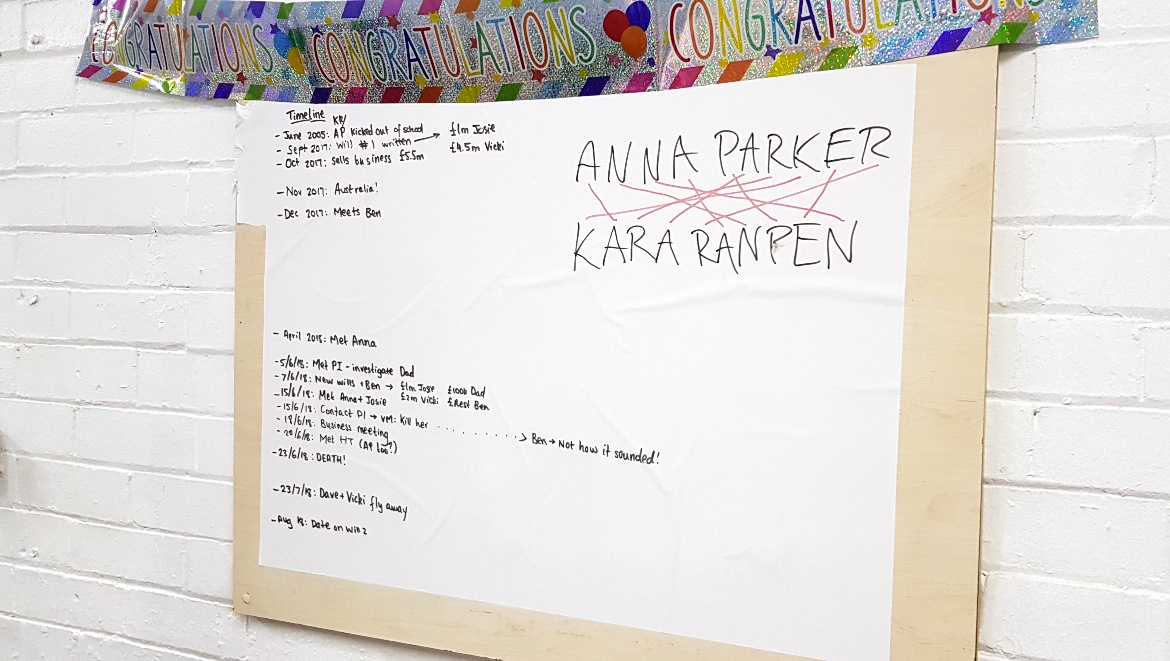 CONGRATULATIONS CONGRATULATIONS CONGRATULATIONS
Timeline
KR/
- June 2005: AP Kicked out of school
- Sept 2017: Will #1 written → £1m Josie
£4.5m Vicki
- Oct 2017: Sells business £5.5m
- Nov 2017: Australia!
- Dec 2017: Meets Ben
ANNA PARKER
KARA RANPEN
- April 2018: Met Anna
- 5/6/18: Met PI - investigate Dad
- 7/6/18: New wills + Ben → £1m Josie £100k Dad
£2m Vicki £Rest Ben
- 15/6/18: Met Anna + Josie
- 15/6/18: Contact PI → VM: Kill her . . . . . . . . . → Ben → Not how it sounded!
- 18/6/18: Business meeting
- 20/6/18: Met HT (AP too?)
- 23/6/18: DEATH!
- 23/7/18: Dave + Vicki fly away
- Aug 18: Date on will 2